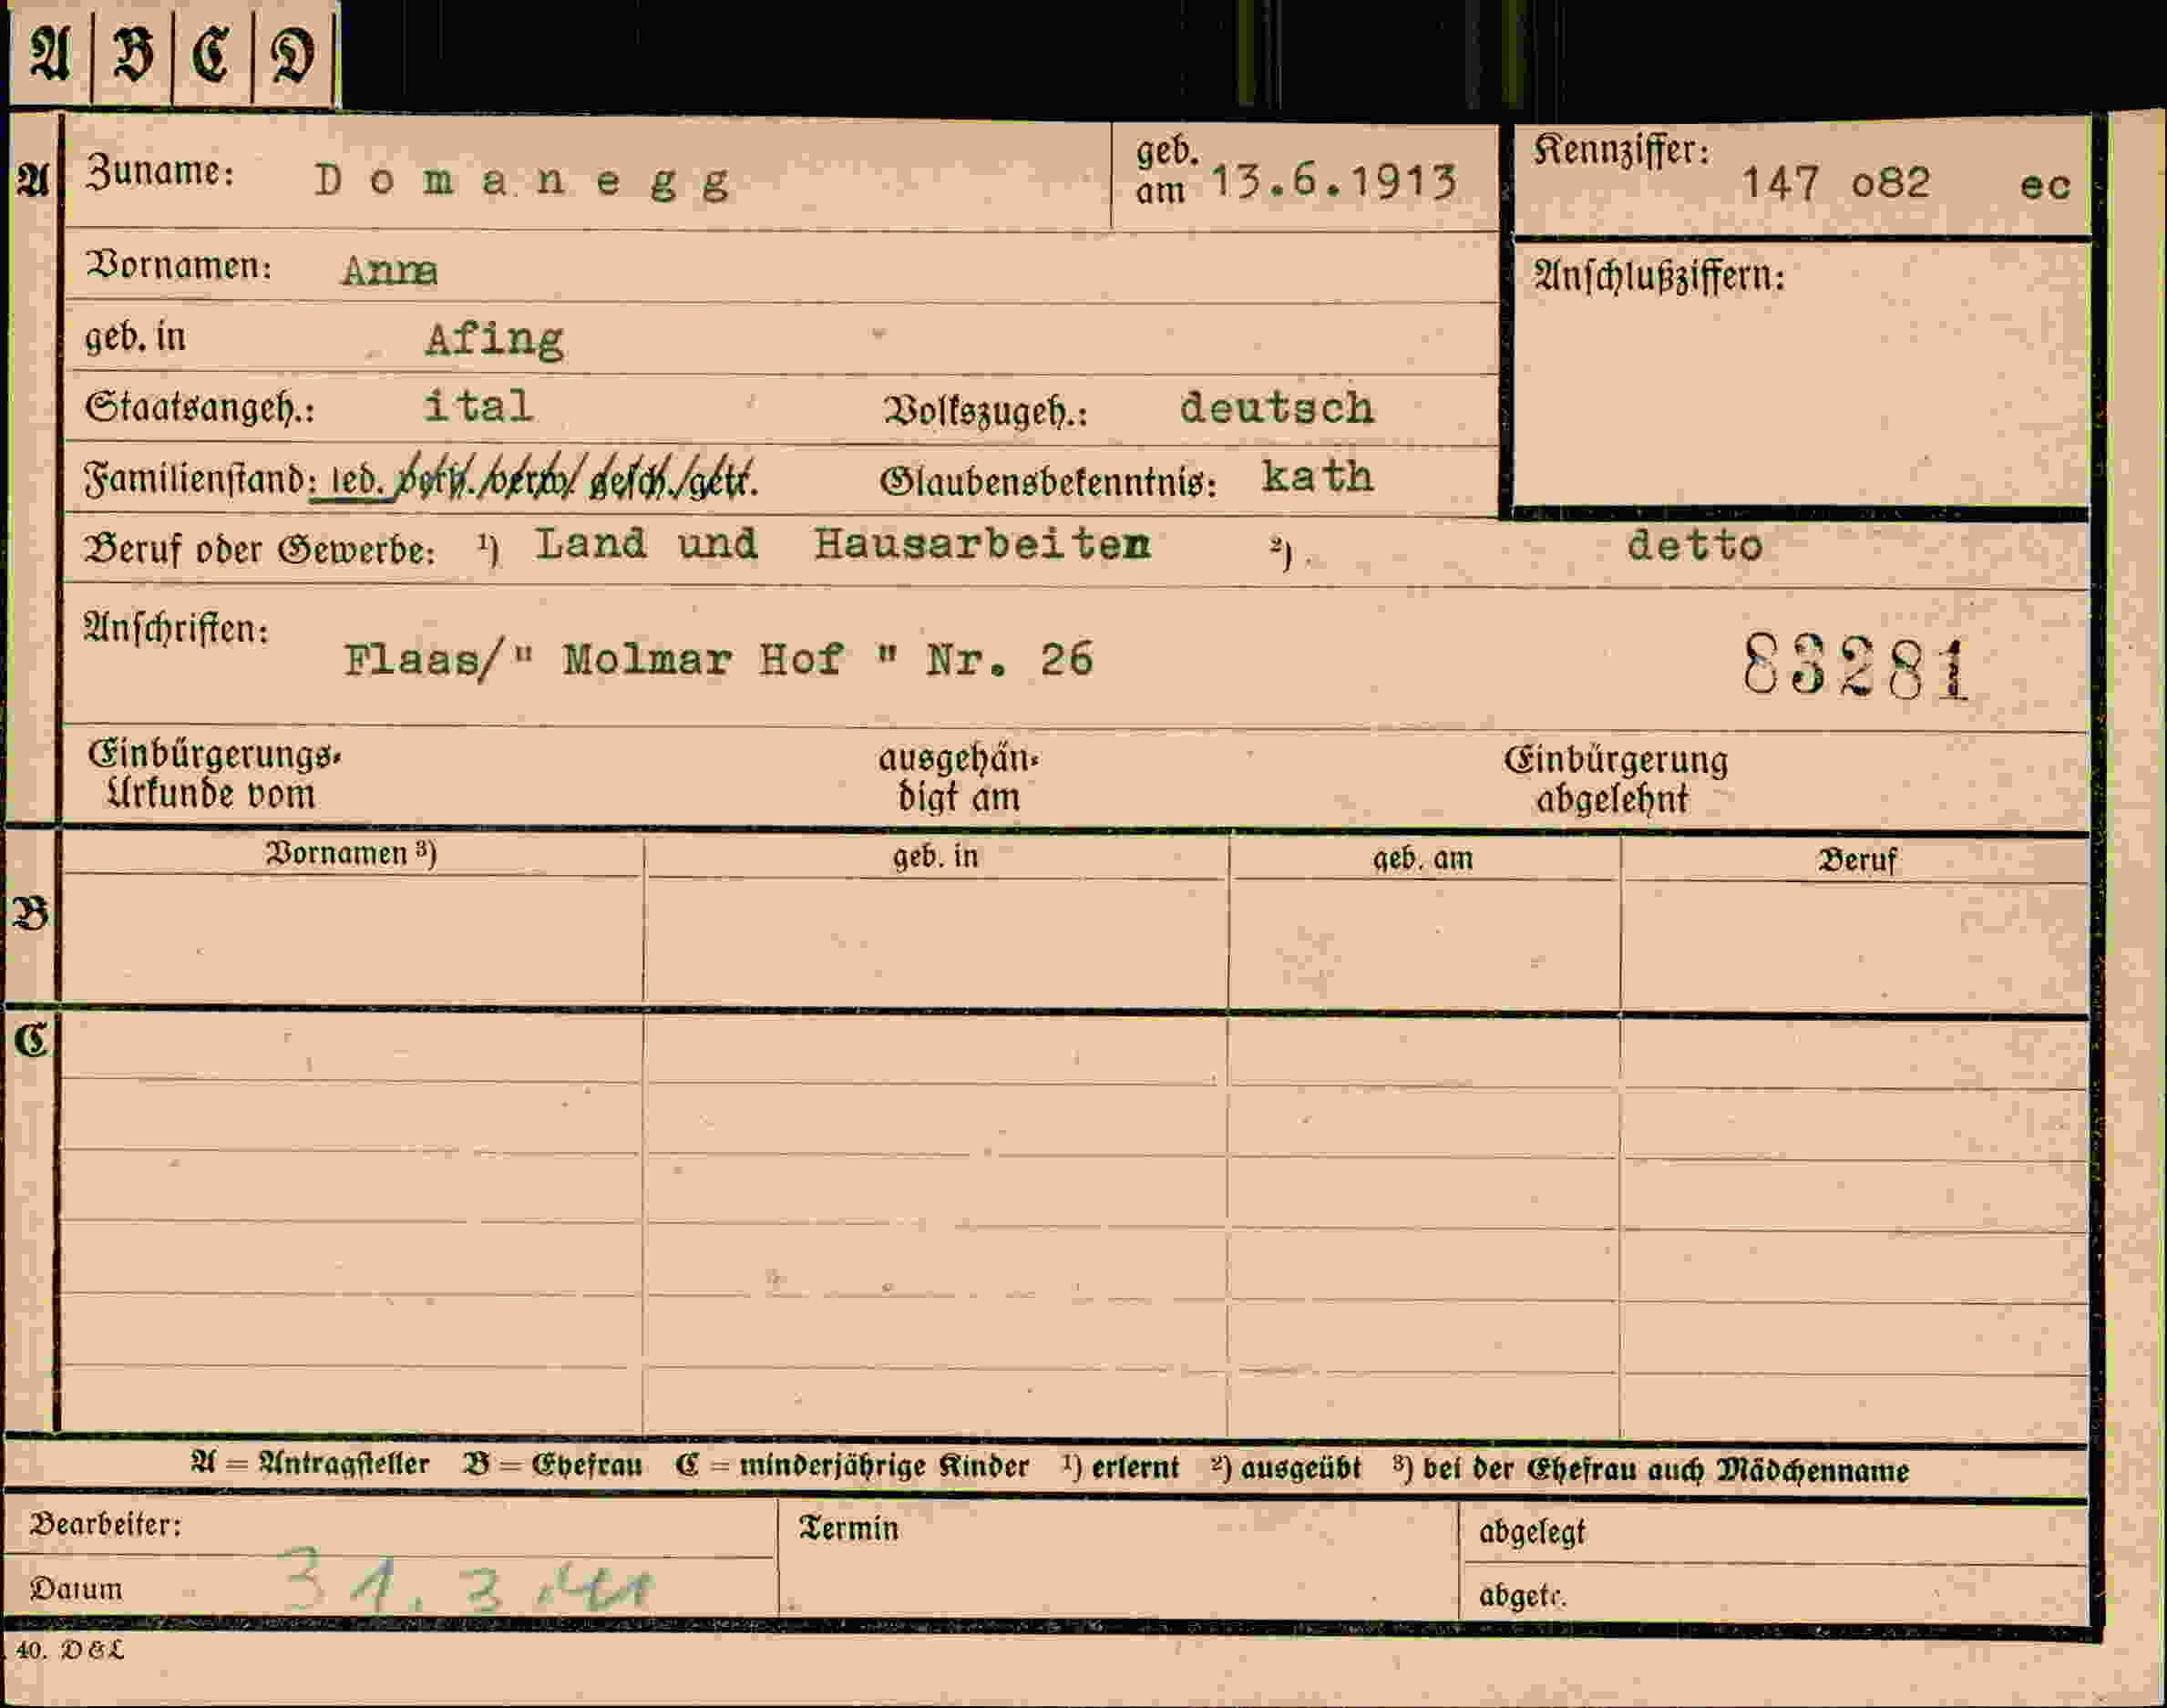 A B C D
A Zuname: Domanegg geb. am 13.6.1913 Kennziffer: 147 o82 ec
Vornamen: Anna Anschlußziffern:
geb. in Afing
Staatsangeh.: ital Volkszugeh.: deutsch
Familienstand: led. / verh. / verw. / gesch. / getr. Glaubensbekenntnis: kath
Beruf oder Gewerbe: ¹) Land und Hausarbeiten ²) detto
Anschriften: Flaas/" Molmar Hof " Nr. 26 83281
Einbürgerungs- ausgehän- Einbürgerung
Urkunde vom digt am abgelehnt
Vornamen ³) geb. in geb. am Beruf
B
C
A = Antragsteller B = Ehefrau C = minderjährige Kinder ¹) erlernt ²) ausgeübt ³) bei der Ehefrau auch Mädchenname
Bearbeiter: Termin abgelegt
Datum 31.3.41 abgetr.
40. D&L